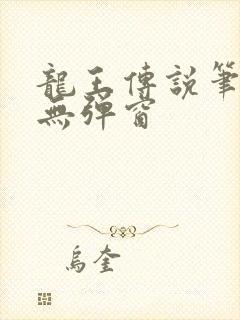 龍王傳說筆
無彈窗
烏奎